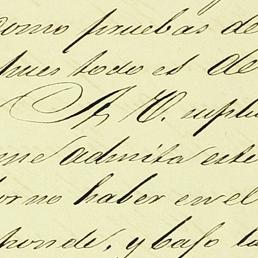 como pruebas de
pues todo es de
A V. suplic
me admita este
torno haber en el
ponde, y bajo la